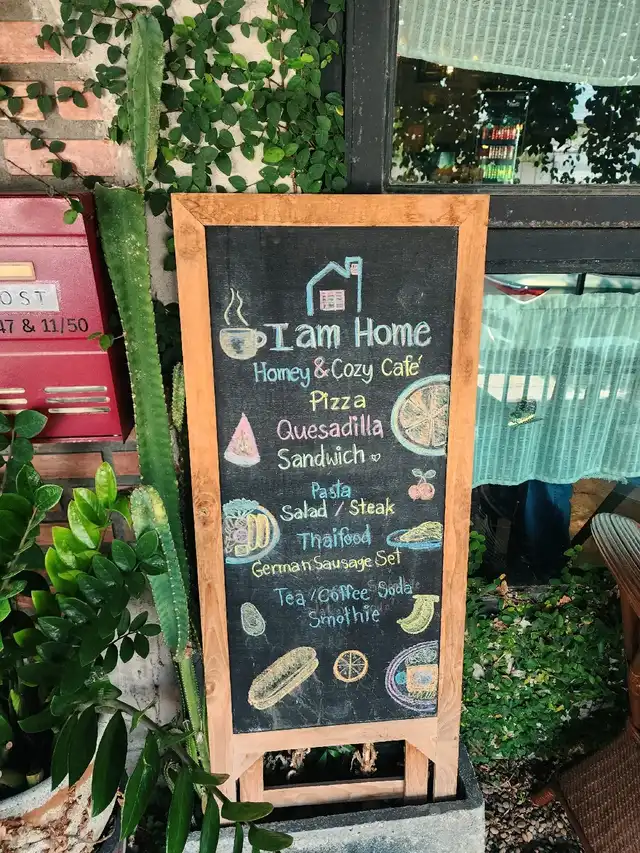 OST
47 & 11/50
I am Home
Homey & Cozy Café
Pizza
Quesadilla
Sandwich
Pasta
Salad / Steak
Thaifood
German Sausage Set
Tea / Coffee Soda
Smothie